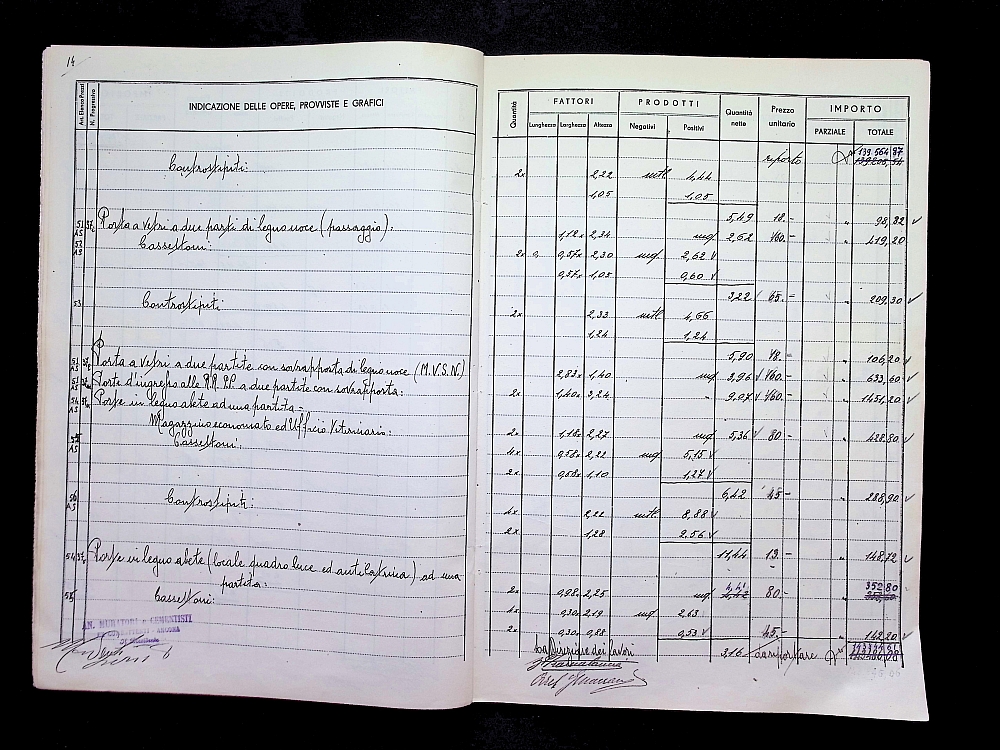 14
Art. Elenco Prezzi
N. Progressivo
INDICAZIONE DELLE OPERE, PROVVISTE E GRAFICI
Quantità
FATTORI
PRODOTTI
Quantità nette
Prezzo unitario
IMPORTO
Lunghezza Larghezza Altezza
Negativi Positivi
PARZIALE TOTALE
riporto 139.564 87
Controstipiti:
2x 2,22 mtl 4,44
1,05 1,05
5,49 18.- " 98,82
51 A5 Porta a vetri a due partiti di legno noce (passaggio):
1,12x 2,34 mq 2,62 160.- " 419,20
52 A5 Cassettoni:
2x 0,57x 2,30 mq. 2,62
0,57x 1,05 0,60
3,22 65.- " 209,30
53 Controstipiti:
2x 2,33 mtl 4,66
1,24 1,24
5,90 18.- " 106,20
51 A5 Porta a vetri a due partite con sovrapporta di legno noce (M.V.S.N.)
2,83x 1,40 mq 3,96 160.- " 633,60
51 A5 Porte d'ingresso alle RR. PP. a due partite con sovrapporta:
2x 1,40x 3,24 " 9.07 160.- " 1451,20
54 A5 Porte in legno abete ad una partita -
Magazzino economato ed Ufficio Veterinario:
2x 1,18x 2,27 mq 5,36 80.- " 428,80
A5 Cassettoni:
4x 0,58x 2,22 mq 5,15
2x 0,58x 1,10 1,27
6,42 45.- " 288,90
56 A5 Controstipiti:
4x 2,22 mtl. 8,88
2x 1,28 2.56
11,44 13.- " 148,72
54 Porte in legno abete (locale quadro luce ed antilatrina) ad una
partita:
2x 0,98x 2,25 mq 4,41 80.- " 352,80
55 Cassettoni:
4x 0,30x 2,19 mq 2,63
2x 0,30x 0,88 0,53
45.- " 142,20
3,16 da riportare
AN. MURATORI e CEMENTISTI
ANCONA
La Direzione dei Lavori